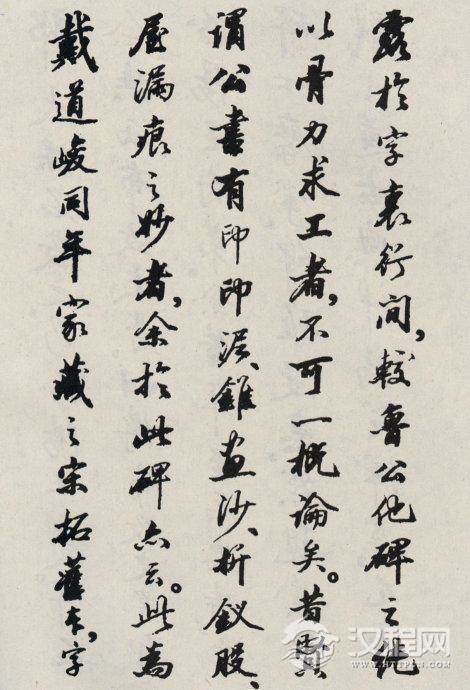 露於字裏行间，較魯公他碑之純
以骨力求工者，不可一概論矣。昔賢
谓公書有印印泥、錐画沙、折釵股、
屋漏痕之妙者，余於此碑亦云。此為
戴道峻同年家藏之宋拓舊本，字
汉程网
HTTPCN.COM